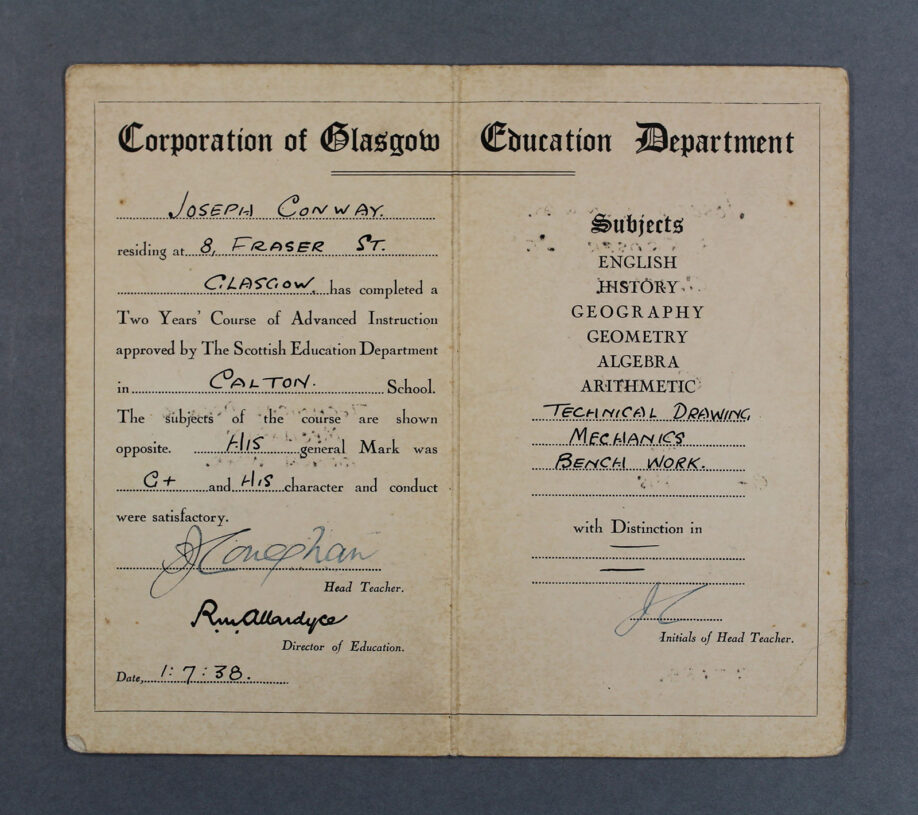 Corporation of Glasgow
JOSEPH CONWAY.
residing at 8, FRASER ST.
GLASGOW, has completed a
Two Years' Course of Advanced Instruction
approved by The Scottish Education Department
in CALTON. School.
The subjects of the course are shown
opposite. HIS general Mark was
G+ and HIS character and conduct
were satisfactory.
J Coneghan
Head Teacher.
R.M. Allardyce
Director of Education.
Date, 1:7:38.
Education Department
Subjects
ENGLISH
HISTORY
GEOGRAPHY
GEOMETRY
ALGEBRA
ARITHMETIC
TECHNICAL DRAWING,
MECHANICS
BENCH WORK.
with Distinction in
JC
Initials of Head Teacher.